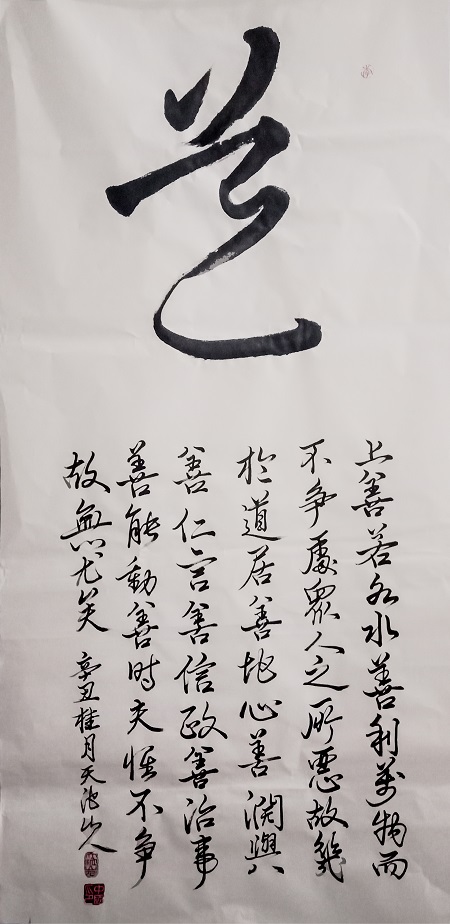 道
上善若水水善利萬物而
不争處眾人之所惡故幾
於道居善地心善淵與
善仁言善信政善治事
善能動善时夫惟不争
故無尤矣 辛丑桂月天池山人